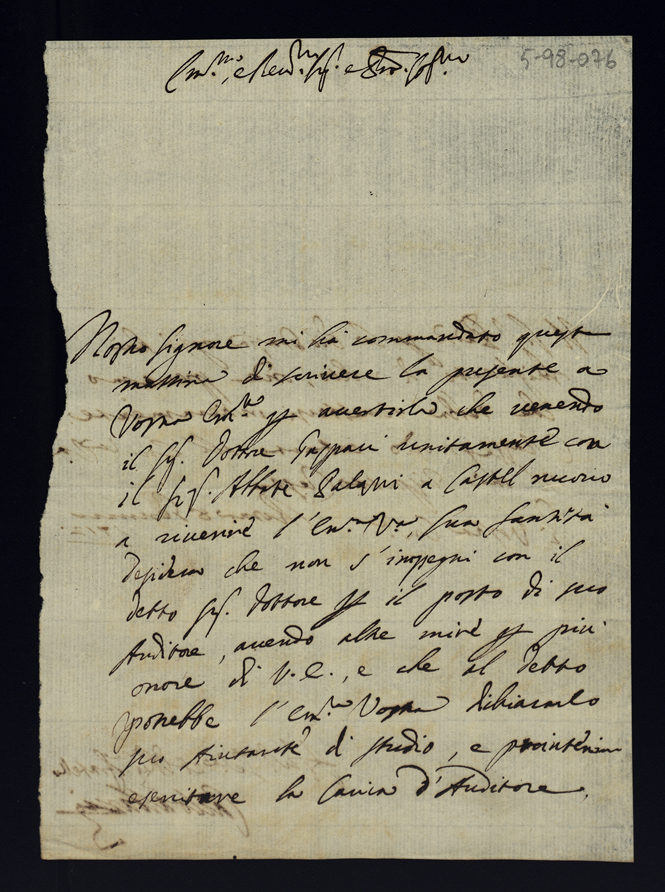 Em.mo, e Rev.mo Sig.r e Pron. Col.mo
5-98-076
Nostro Signore mi hà commandato questa
mattina di scrivere la presente a
Vostra Em.za p avertirla che venendo
il Sig. Dottore Gaspari unitamente con
il Sig.r Abbate Galassi a Castel nuovo
a riverire l'Em.za V.ra Sua Santità
desidera che non s'impegni con il
detto Sig. Dottore p il posto di suo
Auditore, avendo altre mire p più
onore di V. E., e che al detto
potrebbe l'Em.za Vostra dichiararlo
suo Aiutante di studio, e prointerim
esercitare la Carica d'Auditore.